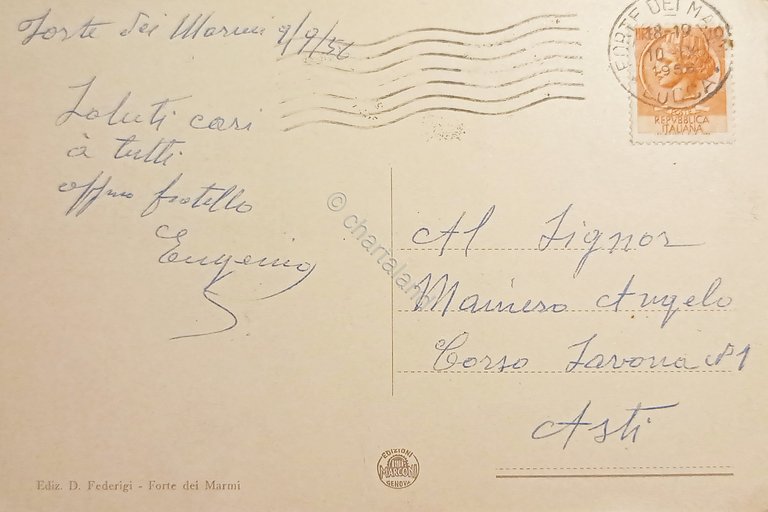 Forte dei Marmi 9/9/56
Saluti cari
à tutti
affmo fratello
Eugenio
S.
FORTE DEI MARMI
18-19
10
195
LUCCA
REPVBBLICA
ITALIANA
© chartaland
Al Signor
Mainero Angelo
Corso Savona N° 1
Asti
EDIZIONI
MARCONI
GENOVA
Ediz. D. Federigi - Forte dei Marmi